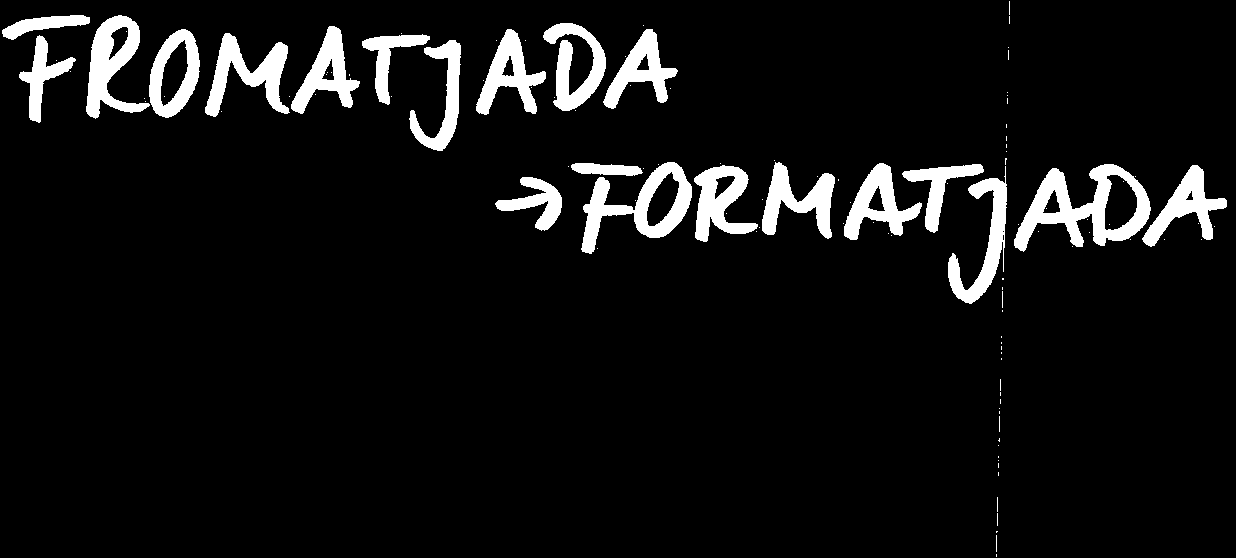 FROMATJADA
→FORMATJADA